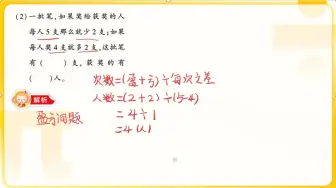 (2)一批笔,如果奖给获奖的人
每人5支那么就少2支;如果
每人奖4支就多2支,这批笔
有( )支,获奖的有
( )人。
解析
盈亏问题
次数=(盈+亏)÷每次之差
人数=(2+2)÷(5-4)
=4÷1
=4(人)